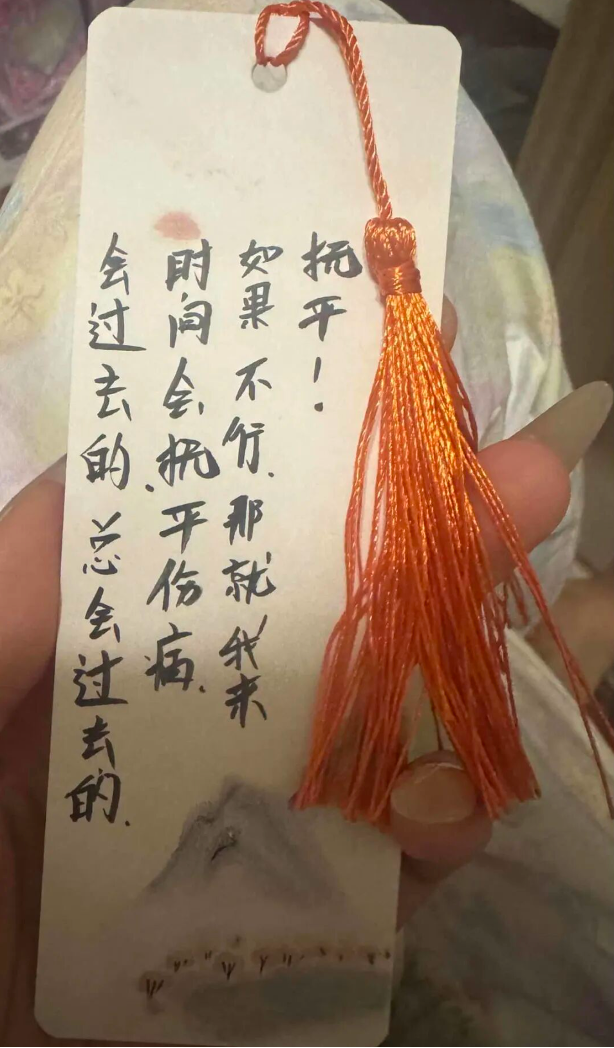 会过去的.总会过去的.
时间会抚平伤病.
如果不行.那就我来
抚平！